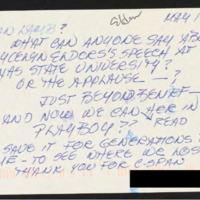 MAY 1
AN LAMB?
WHAT CAN ANYONE SAY ABO
SPEECH AT
AS STATE UNIVERSITY?
OR THE APPLAUSE — ?
JUST BEYOND BELIEF —
AND NOW WE CAN HER IN
PLAYBOY?? READ
SAVE IT FOR GENERATIONS
E - TO SEE WHERE WE LOS
THANK YOU FOR C-SPAN